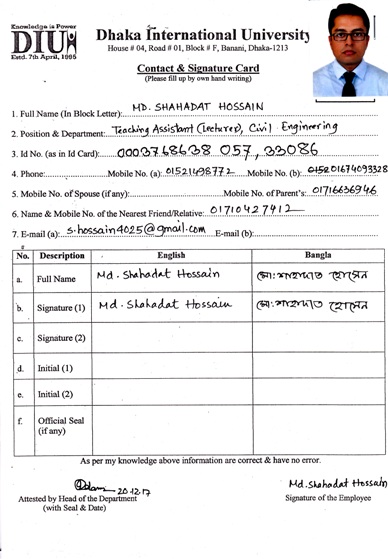 Knowledge is Power
DIU
Estd. 7th April, 1995
Dhaka International University
House # 04, Road # 01, Block # F, Banani, Dhaka-1213
Contact & Signature Card
(Please fill up by own hand writing)
1. Full Name (In Block Letter): MD. SHAHADAT HOSSAIN
2. Position & Department: Teaching Assistant (Lecturer), Civil Engineering
3. Id No. (as in Id Card): 0003768638 057, 33086
4. Phone: Mobile No. (a): 01521498772 Mobile No. (b): 01674093328
5. Mobile No. of Spouse (if any): Mobile No. of Parent's: 01716636946
6. Name & Mobile No. of the Nearest Friend/Relative: 01710427412
7. E-mail (a): s.hossain4025@gmail.com E-mail (b):
No. Description English Bangla
a. Full Name Md. Shahadat Hossain মো: শাহাদাত হোসেন
b. Signature (1) Md. Shahadat Hossain মো: শাহাদাত হোসেন
c. Signature (2)
d. Initial (1)
e. Initial (2)
f. Official Seal (if any)
As per my knowledge above information are correct & have no error.
20.12.17 Md. Shahadat Hossain
Attested by Head of the Department Signature of the Employee
(with Seal & Date)